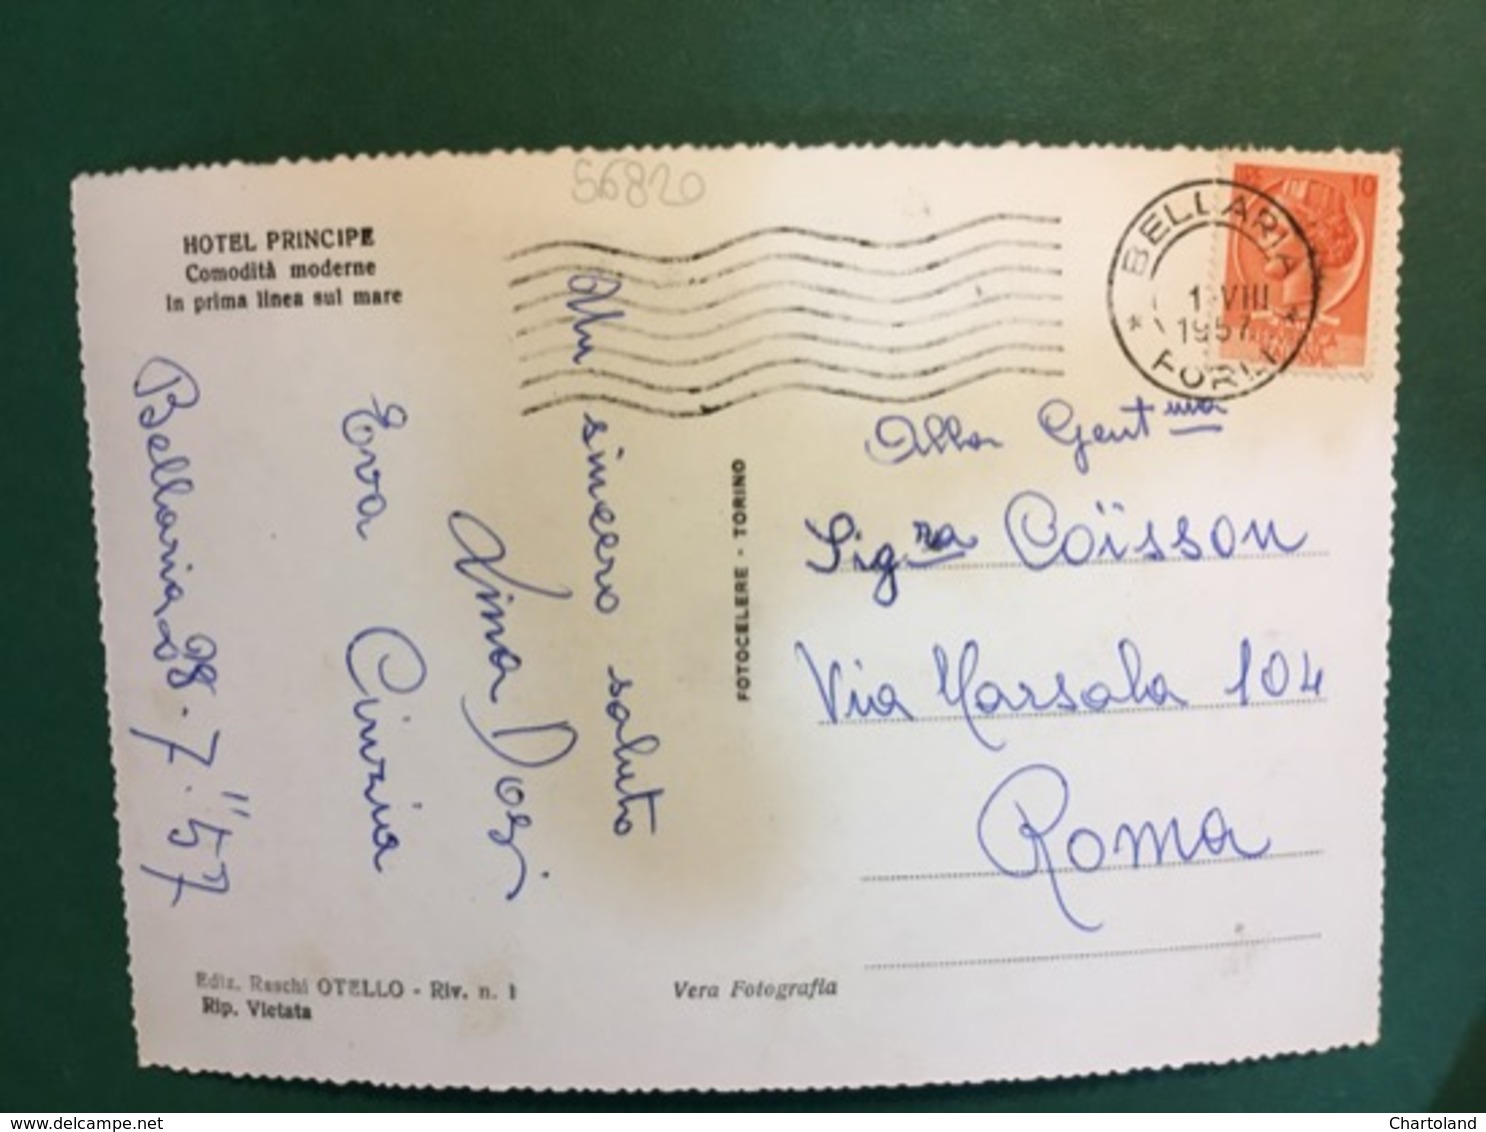 56820
HOTEL PRINCIPE
Comodità moderne
In prima linea sul mare
Un sincero saluto
Lina Dosi
Eva Cinzia
Bellaria 28.7."57
BELLARIA
1 VIII
1957
FORLI
10
FOTOCELERE - TORINO
Alla Gent ma
Sig.ra Coïsson
Via Marsala 104
Roma
Ediz. Raschi OTELLO - Riv. n. 1
Rip. Vietata
Vera Fotografia
www.delcampe.net
Chartoland